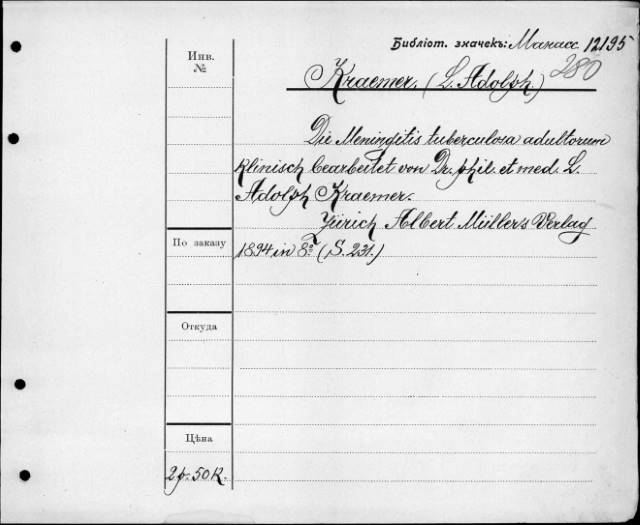 Библіот. значекъ: Манасс. 12195
280
Инв.
№
Kraemer, (L. Adolph.)
Die Meningitis tuberculosa adultorum
klinisch bearbeitet von Dr. phil. et med. L.
Adolph Kraemer.
Zürich Albert Müller's Verlag
По заказу
1894 in 8º (S. 231.)
Откуда
Цѣна
2 р. 50 К.